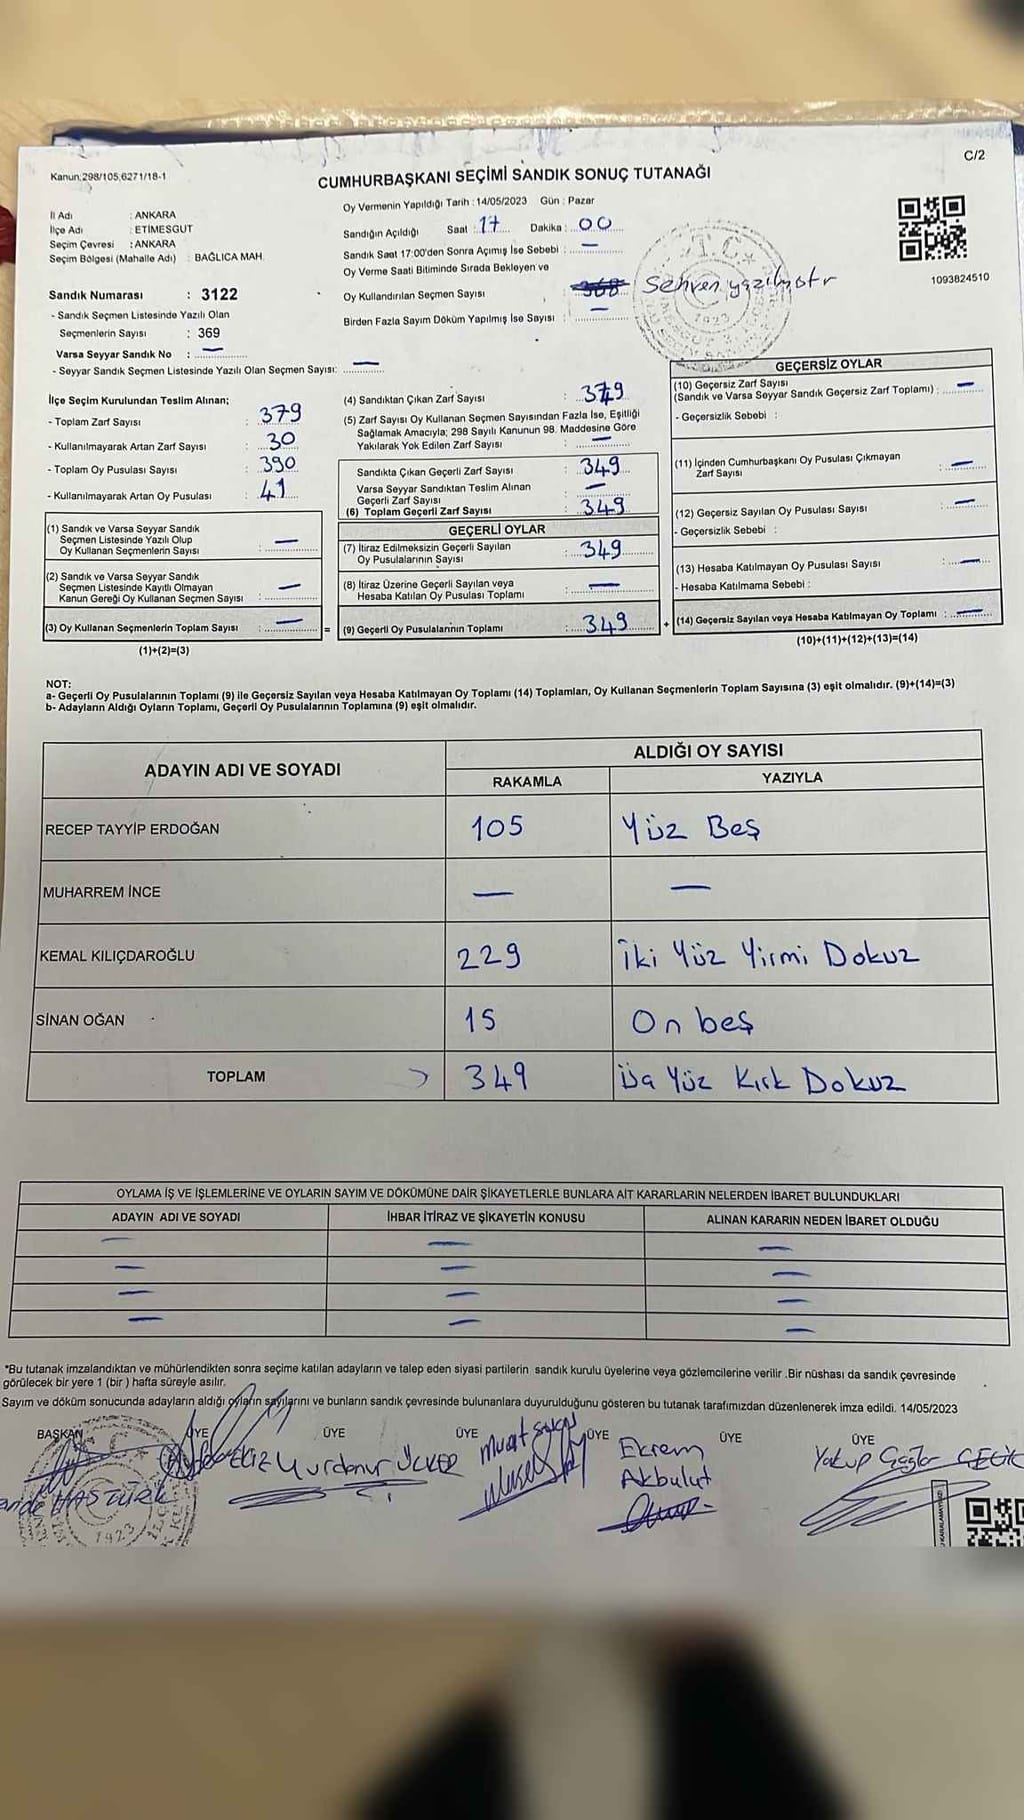 C/2
Kanun;298/105,6271/18-1
CUMHURBAŞKANI SEÇİMİ SANDIK SONUÇ TUTANAĞI
İl Adı : ANKARA
İlçe Adı : ETİMESGUT
Seçim Çevresi : ANKARA
Seçim Bölgesi (Mahalle Adı) : BAĞLICA MAH.
Sandık Numarası : 3122
- Sandık Seçmen Listesinde Yazılı Olan
Seçmenlerin Sayısı : 369
Varsa Seyyar Sandık No : —
- Seyyar Sandık Seçmen Listesinde Yazılı Olan Seçmen Sayısı: —
Oy Vermenin Yapıldığı Tarih : 14/05/2023 Gün : Pazar
Sandığın Açıldığı Saat : 17 Dakika : 00
Sandık Saat 17:00'den Sonra Açımış İse Sebebi : —
Oy Verme Saati Bitiminde Sırada Bekleyen ve
Oy Kullandırılan Seçmen Sayısı : 368 Sehven yazılmıştır
Birden Fazla Sayım Döküm Yapılmış İse Sayısı : —
T.C.
1923
1093824510
İlçe Seçim Kurulundan Teslim Alınan;
- Toplam Zarf Sayısı : 379
- Kullanılmayarak Artan Zarf Sayısı : 30
- Toplam Oy Pusulası Sayısı : 390
- Kullanılmayarak Artan Oy Pusulası : 41
(1) Sandık ve Varsa Seyyar Sandık
Seçmen Listesinde Yazılı Olup
Oy Kullanan Seçmenlerin Sayısı : —
(2) Sandık ve Varsa Seyyar Sandık
Seçmen Listesinde Kayıtlı Olmayan
Kanun Gereği Oy Kullanan Seçmen Sayısı : —
(3) Oy Kullanan Seçmenlerin Toplam Sayısı : — =
(1)+(2)=(3)
(4) Sandıktan Çıkan Zarf Sayısı : 349
(5) Zarf Sayısı Oy Kullanan Seçmen Sayısından Fazla İse, Eşitliği
Sağlamak Amacıyla; 298 Sayılı Kanunun 98. Maddesine Göre
Yakılarak Yok Edilen Zarf Sayısı : —
Sandıkta Çıkan Geçerli Zarf Sayısı : 349
Varsa Seyyar Sandıktan Teslim Alınan
Geçerli Zarf Sayısı : —
(6) Toplam Geçerli Zarf Sayısı : 349
GEÇERLİ OYLAR
(7) İtiraz Edilmeksizin Geçerli Sayılan
Oy Pusulalarının Sayısı : 349
(8) İtiraz Üzerine Geçerli Sayılan veya
Hesaba Katılan Oy Pusulası Toplamı : —
(9) Geçerli Oy Pusulalarının Toplamı : 349 +
GEÇERSİZ OYLAR
(10) Geçersiz Zarf Sayısı
(Sandık ve Varsa Seyyar Sandık Geçersiz Zarf Toplamı) : —
- Geçersizlik Sebebi :
(11) İçinden Cumhurbaşkanı Oy Pusulası Çıkmayan
Zarf Sayısı : —
(12) Geçersiz Sayılan Oy Pusulası Sayısı : —
- Geçersizlik Sebebi :
(13) Hesaba Katılmayan Oy Pusulası Sayısı : —
- Hesaba Katılmama Sebebi :
(14) Geçersiz Sayılan veya Hesaba Katılmayan Oy Toplamı : —
(10)+(11)+(12)+(13)=(14)
NOT:
a- Geçerli Oy Pusulalarının Toplamı (9) ile Geçersiz Sayılan veya Hesaba Katılmayan Oy Toplamı (14) Toplamları, Oy Kullanan Seçmenlerin Toplam Sayısına (3) eşit olmalıdır. (9)+(14)=(3)
b- Adayların Aldığı Oyların Toplamı, Geçerli Oy Pusulalarının Toplamına (9) eşit olmalıdır.
ADAYIN ADI VE SOYADI ALDIĞI OY SAYISI
RAKAMLA YAZIYLA
RECEP TAYYİP ERDOĞAN 105 Yüz Beş
MUHARREM İNCE — —
KEMAL KILIÇDAROĞLU 229 İki Yüz Yirmi Dokuz
SİNAN OĞAN 15 On beş
TOPLAM 349 Üç Yüz Kırk Dokuz
OYLAMA İŞ VE İŞLEMLERİNE VE OYLARIN SAYIM VE DÖKÜMÜNE DAİR ŞİKAYETLERLE BUNLARA AİT KARARLARIN NELERDEN İBARET BULUNDUKLARI
ADAYIN ADI VE SOYADI İHBAR İTİRAZ VE ŞİKAYETİN KONUSU ALINAN KARARIN NEDEN İBARET OLDUĞU
— — —
— — —
— — —
— — —
*Bu tutanak imzalandıktan ve mühürlendikten sonra seçime katılan adayların ve talep eden siyasi partilerin sandık kurulu üyelerine veya gözlemcilerine verilir .Bir nüshası da sandık çevresinde
görülecek bir yere 1 (bir ) hafta süreyle asılır.
Sayım ve döküm sonucunda adayların aldığı oyların sayılarını ve bunların sandık çevresinde bulunanlara duyurulduğunu gösteren bu tutanak tarafımızdan düzenlenerek imza edildi. 14/05/2023
BAŞKAN ÜYE ÜYE ÜYE ÜYE ÜYE ÜYE
Nurdanur ÜCKER
Murat
Ekrem
Akbulut
Yakup Çağlar
1923